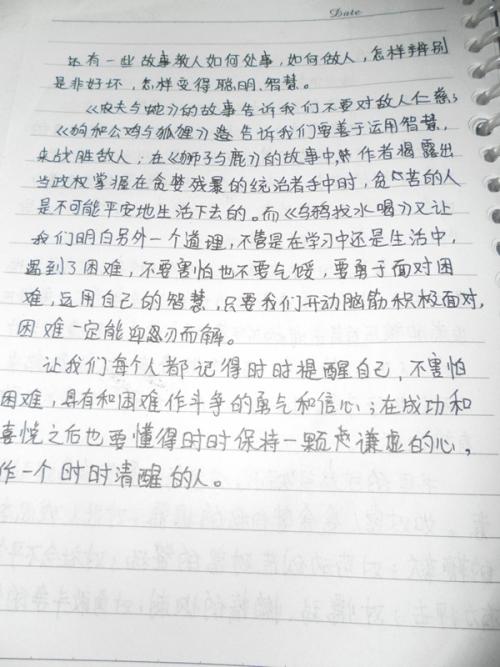 Date
还有一些故事教人如何处事，如何做人，怎样辨别
是非好坏，怎样变得聪明、智慧。
《农夫与蛇》的故事告诉我们不要对敌人仁慈；
《狗和公鸡与狐狸》告诉我们要善于运用智慧，
来战胜敌人；在《狮子与鹿》的故事中，作者揭露出
当政权掌握在贪婪残暴的统治者手中时，贫苦的人
是不可能平安地生活下去的。而《乌鸦找水喝》又让
我们明白另外一个道理，不管是在学习中还是生活中，
遇到了困难，不要害怕也不要气馁，要勇于面对困
难，运用自己的智慧，只要我们开动脑筋积极面对，
困难一定能迎忍刃而解。
让我们每个人都记得时时提醒自己，不害怕
困难，具有和困难作斗争的勇气和信心；在成功和
喜悦之后也要懂得时时保持一颗谦虚的心，
作一个时时清醒的人。